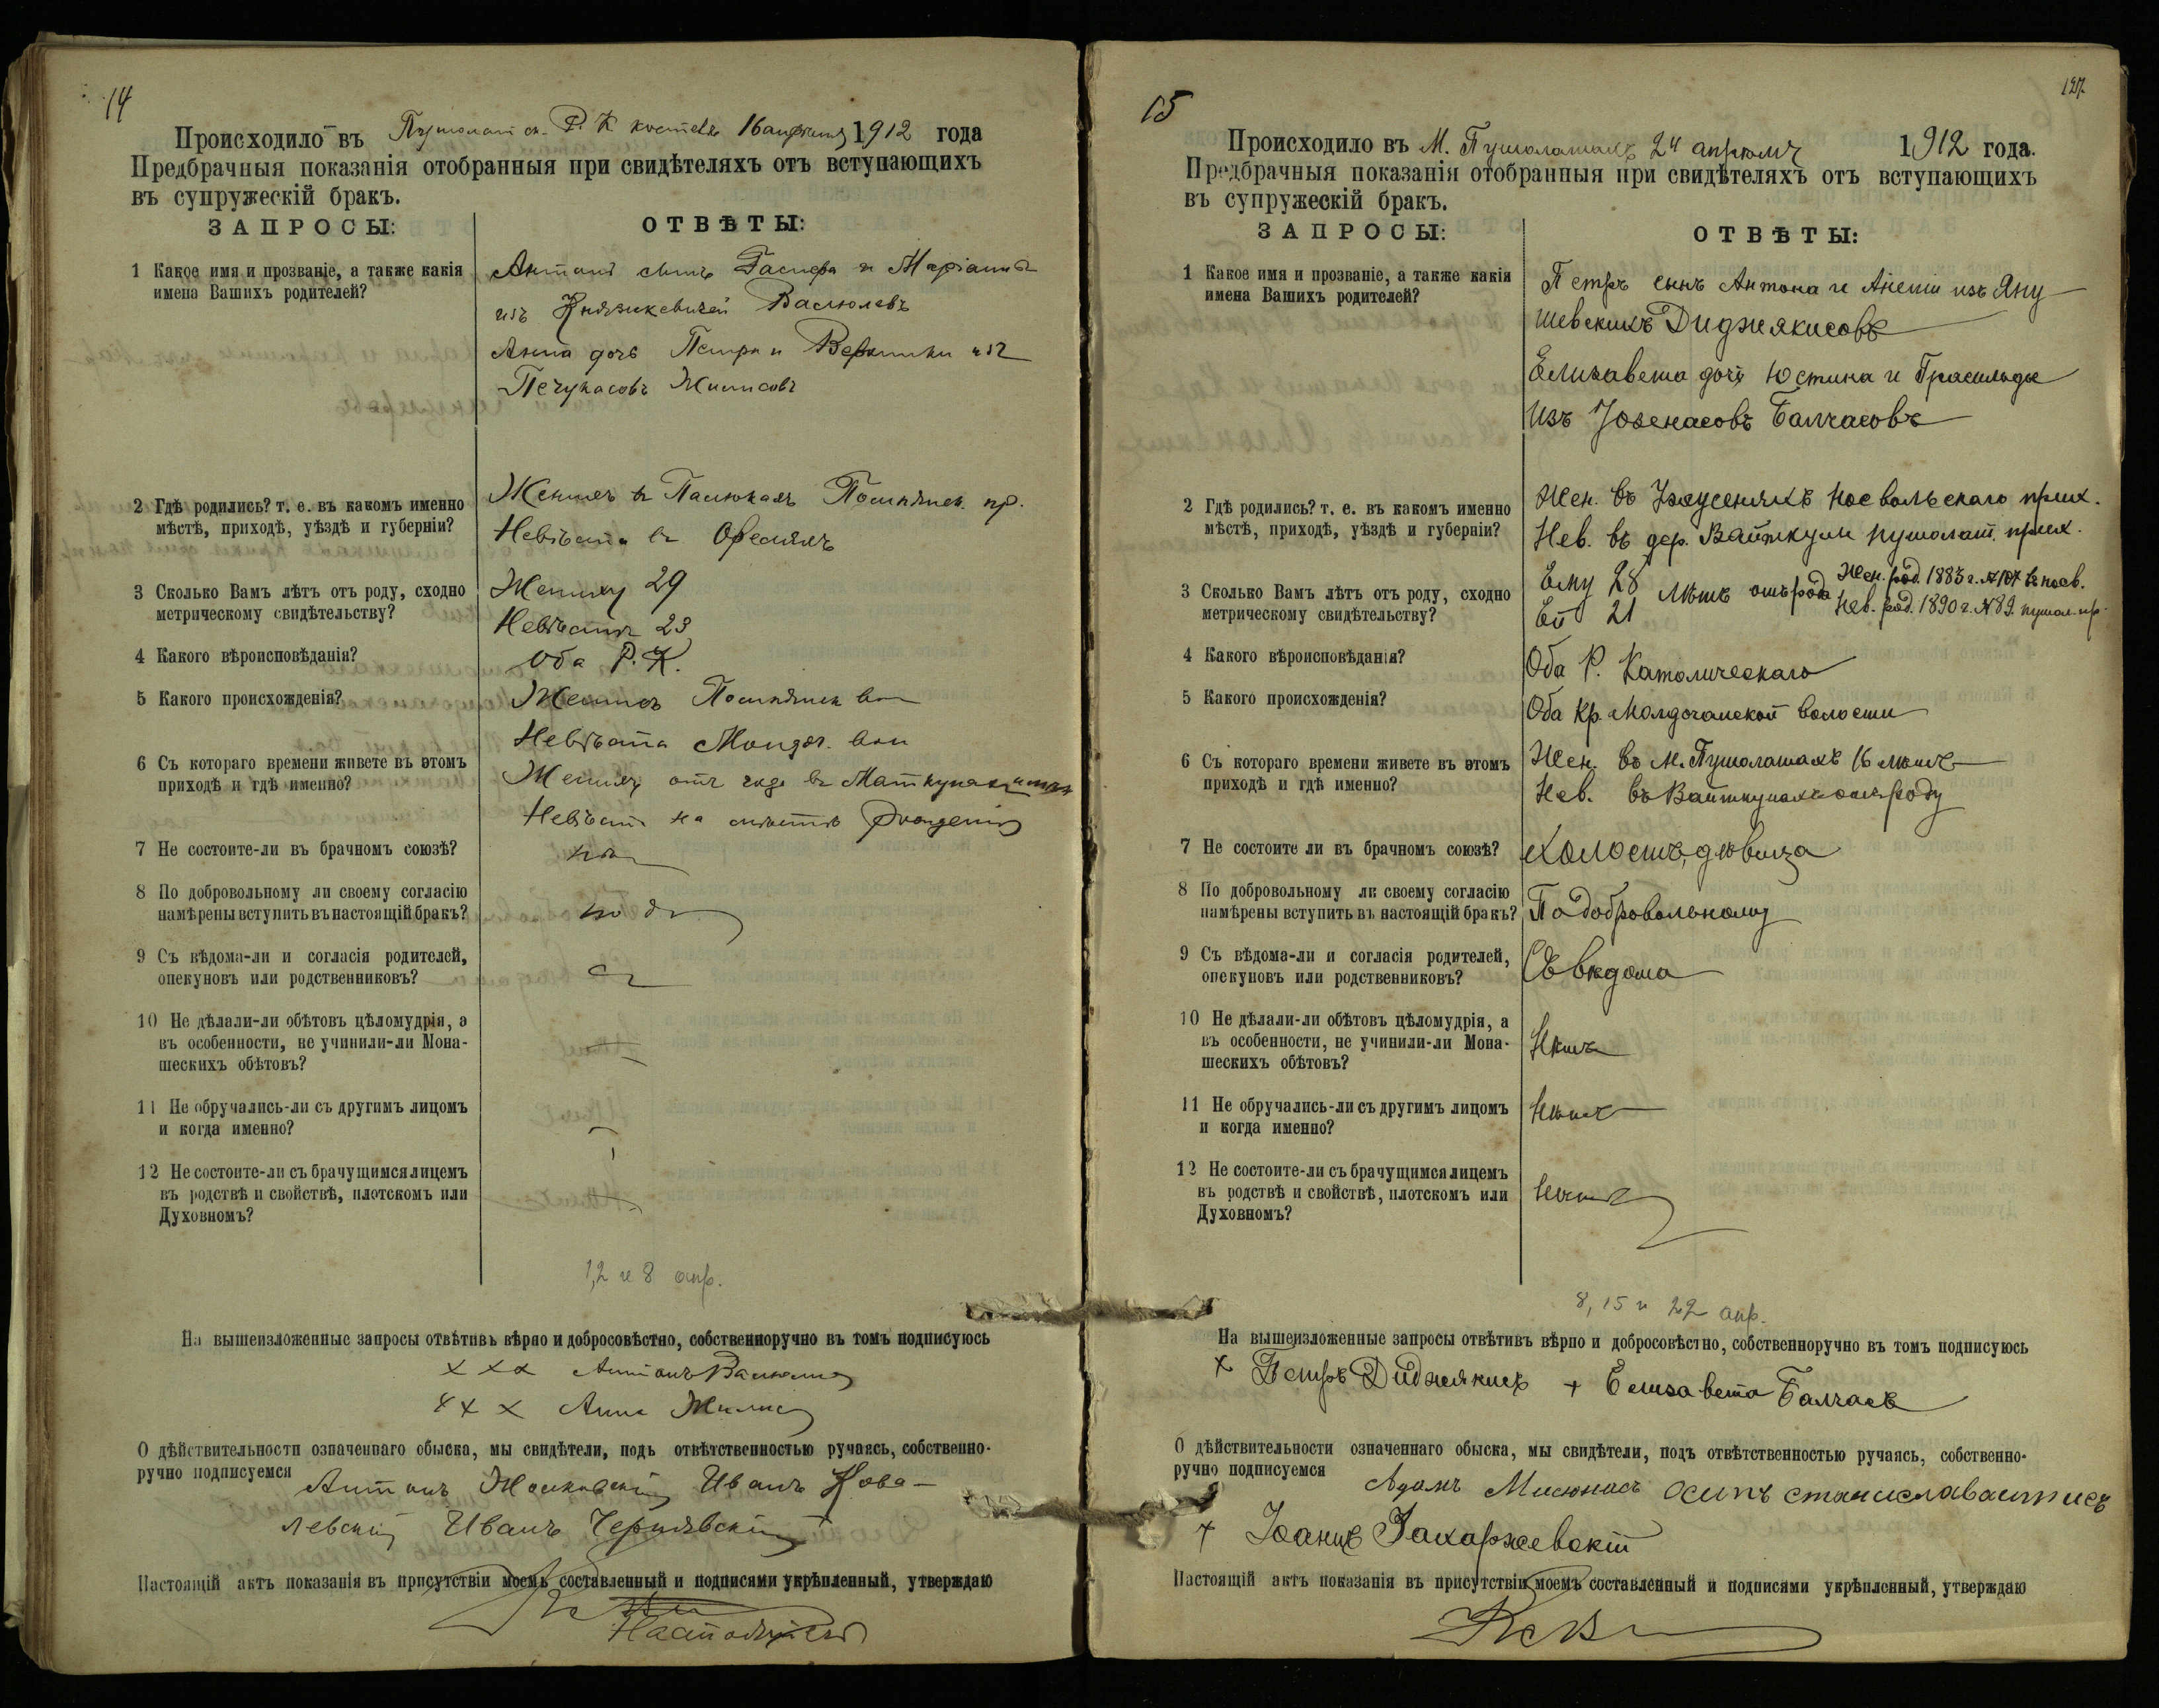 14
Происходило въ Пушолатск. Р. К костелѣ 16 апрѣля 1912 года
Предбрачныя показанія отобранныя при свидѣтеляхъ отъ вступающихъ
въ супружескій бракъ.
ЗАПРОСЫ:
ОТВѢТЫ:
1 Какое имя и прозваніе, а также какія
имена Вашихъ родителей?
Антонъ сынъ Гаспера и Маріанны
изъ Васюлевъ
Анна дочь Петра и Вероники изъ
Печукасовъ Жилисовъ
2 Гдѣ родились? т. е. въ какомъ именно
мѣстѣ, приходѣ, уѣздѣ и губерніи?
Женихъ въ пр.
Невѣста въ
3 Сколько Вамъ лѣтъ отъ роду, сходно
метрическому свидѣтельству?
Жениху 29
Невѣстѣ 23
4 Какого вѣроисповѣданія?
Оба Р. К.
5 Какого происхожденія?
Женихъ вол
Невѣста вол
6 Съ котораго времени живете въ этомъ
приходѣ и гдѣ именно?
Женихъ отъ года въ
Невѣста на мѣстѣ рожденія
7 Не состоите-ли въ брачномъ союзѣ?
нѣтъ
8 По добровольному ли своему согласію
намѣрены вступить въ настоящій бракъ?
по д
9 Съ вѣдома-ли и согласія родителей,
опекуновъ или родственниковъ?
съ
10 Не дѣлали-ли обѣтовъ цѣломудрія, а
въ особенности, не учинили-ли Мона-
шескихъ обѣтовъ?
11 Не обручались-ли съ другимъ лицомъ
и когда именно?
12 Не состоите-ли съ брачущимся лицемъ
въ родствѣ и свойствѣ, плотскомъ или
Духовномъ?
1,2 и 8 апр.
На вышеизложенные запросы отвѣтивъ вѣрно и добросовѣстно, собственноручно въ томъ подписуюсь
× × × Антонъ
× × × Анна Жилис
О дѣйствительности означеннаго обыска, мы свидѣтели, подъ отвѣтственностью ручаясь, собственно-
ручно подписуемся Антонъ Иванъ Кова-
левскій Иванъ Чернявскій
Настоящій актъ показанія въ присутствіи моемъ составленный и подписями укрѣпленный, утверждаю
127
15
Происходило въ М. Пушолатахъ 24 апрѣля 1912 года.
Предбрачныя показанія отобранныя при свидѣтеляхъ отъ вступающихъ
въ супружескій бракъ.
ЗАПРОСЫ:
ОТВѢТЫ:
1 Какое имя и прозваніе, а также какія
имена Вашихъ родителей?
Петръ сынъ Антона и Анели изъ Яну
шевскихъ Диджякисовъ
Елизавета дочь Юстина и Грасильды
изъ Юзенасовъ Балчасовъ
2 Гдѣ родились? т. е. въ какомъ именно
мѣстѣ, приходѣ, уѣздѣ и губерніи?
Жен. въ посвольскаго прих.
Нев. въ дер. Вайткуны пушолат. прих.
3 Сколько Вамъ лѣтъ отъ роду, сходно
метрическому свидѣтельству?
Ему 28 лѣтъ отъ роду Жен. род. 1883 г. №107 въ посв.
Ей 21 Нев. род. 1890 г. №89 пушол. пр.
4 Какого вѣроисповѣданія?
Оба Р. Католическаго
5 Какого происхожденія?
Оба Кр. волости
6 Съ котораго времени живете въ этомъ
приходѣ и гдѣ именно?
Жен. въ м. Пушолатахъ 16 лѣтъ
Нев. въ Вайткунахъ отъ роду
7 Не состоите ли въ брачномъ союзѣ?
Холостъ, дѣвица
8 По добровольному ли своему согласію
намѣрены вступить въ настоящій бракъ?
По добровольному
9 Съ вѣдома-ли и согласія родителей,
опекуновъ или родственниковъ?
Съ вѣдома
10 Не дѣлали-ли обѣтовъ цѣломудрія, а
въ особенности, не учинили-ли Мона-
шескихъ обѣтовъ?
Нѣтъ
11 Не обручались-ли съ другимъ лицомъ
и когда именно?
Нѣтъ
12 Не состоите-ли съ брачущимся лицемъ
въ родствѣ и свойствѣ, плотскомъ или
Духовномъ?
Нѣтъ
8, 15 и 22 апр.
На вышеизложенные запросы отвѣтивъ вѣрно и добросовѣстно, собственноручно въ томъ подписуюсь
× Петръ Диджякисъ + Елизавета Балчасъ
О дѣйствительности означеннаго обыска, мы свидѣтели, подъ отвѣтственностью ручаясь, собственно-
ручно подписуемся Адамъ Мисюнасъ Осипъ
+ Іоаннъ Захаржевскій
Настоящій актъ показанія въ присутствіи моемъ составленный и подписями укрѣпленный, утверждаю